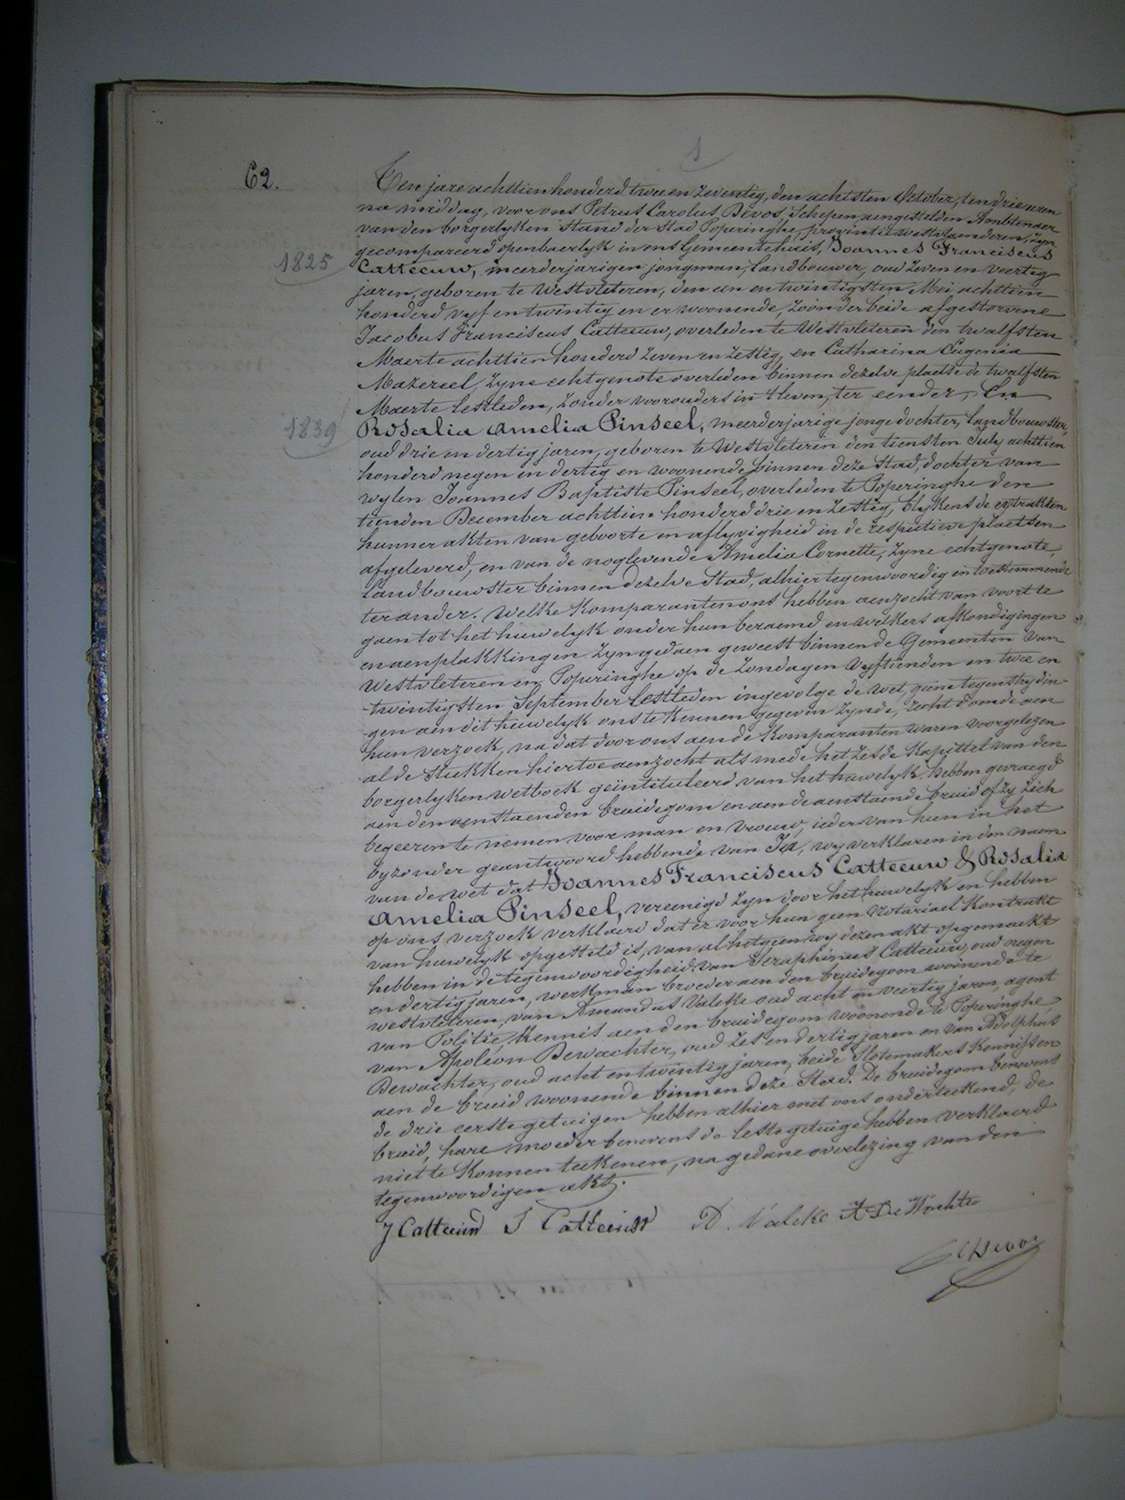 62.
Ten jare achttien honderd twee en zeventig, den achtsten October, ten drie uren
na middag, voor ons Petrus Carolus Devos, Schepen aengestelden Ambtenaer
van den borgerlyken stand der stad Poperinghe, provincie westvlaenderen, zyn
gecompareerd openbaerlyk in ons Gemeentehuis, Joannes Franciscus
1825
Catteeuw, meerderjarigen jongman, landbouwer, oud zeven en veertig
jaren, geboren te Westvleteren, den een en twintigsten Mei achttien
honderd vyf en twintig en er woonende, zoon der beide afgestorvene
Jacobus Franciscus Catteeuw, overleden te Westvleteren den twalfsten
Maerte achttien honderd zeven en zestig, en Catharina Eugenia
Mazereel, zyne echtgenote overleden binnen dezelve plaetse de twalfsten
Maerte lestleden, zonder voorouders in 't leven, ter eender, En
1839
Rosalia Amelia Pinseel, meerderjarige jonge dochter, landbouwster,
oud drie en dertig jaren, geboren te Westvleteren den tiensten July achttien
honderd negen en dertig en woonende binnen deze Stad, dochter van
wylen Joannes Baptiste Pinseel, overleden te Poperinghe den
tienden December achttien honderd drie en zestig, blykens de extrakten
hunner akten van geboorte en aflyvigheid in de respective plaetsen
afgeleverd, en van de noglevende Amelia Cornette, zyne echtgenote,
landbouwster binnen dezelve Stad, alhier tegenwoordig en toestemmende
ter ander. Welke Komparanten ons hebben aenzocht van voort te
gaen tot het huwelyk onder hun beraemd en welkers afkondigingen
en aenplakkingen zyn gedaen geweest binnen de Gemeenten van
Westvleteren en Poperinghe op de zondagen vyftienden en twee en
twintigsten September lestleden ingevolge de wet, geene tegenstrydin-
gen aen dit huwelyk ons te kennen gegeven zynde, recht doende aen
hun verzoek, na dat door ons aen de Komparanten waren voorgelezen
al de stukken hiertoe aenzocht als mede het zesde Kapittel van den
borgerlyken wetboek geïntituleerd van het huwelyk, hebben gevraegd
aen den aenstaenden bruidegom en aen de aenstaende bruid of zy zich
begeeren te nemen voor man en vrouw, ieder van hun in het
byzonder geantwoord hebbende van Ja, wy verklaren in den naem
van de wet dat Joannes Franciscus Catteeuw & Rosalia
Amelia Pinseel, vereenigd zyn door het huwelyk en hebben
op ons verzoek verklaerd dat er voor hun geen Notariael Kontrakt
van huwelyk opgesteld is, van al hetgeen wy dezen akt opgemaekt
hebben in de tegenwoordigheid van Seraphinus Catteeuw, oud negen
en dertig jaren, werkman broeder aen den bruidegom woonende te
westvleteren, van Amandus Valcke oud acht en veertig jaren, agent
van Politie, Kennis aen den bruidegom woonende te Poperinghe,
van Apoleon Dewachter, oud zes en dertig jaren en van Adolphus
Dewachter, oud acht en twintig jaren, beide Slotemakers Kennissen
aen de bruid woonende binnen deze Stad. De bruidegom benevens
de drie eerste getuigen hebben alhier met ons onderteekend, de
bruid, hare moeder benevens de leste getuige hebben verklaerd
niet te konnen teekenen, na gedane overlezing van den
tegenwoordigen akt.
J Catteeuw S Catteeuw A. Valcke A De Wachter
C Devos